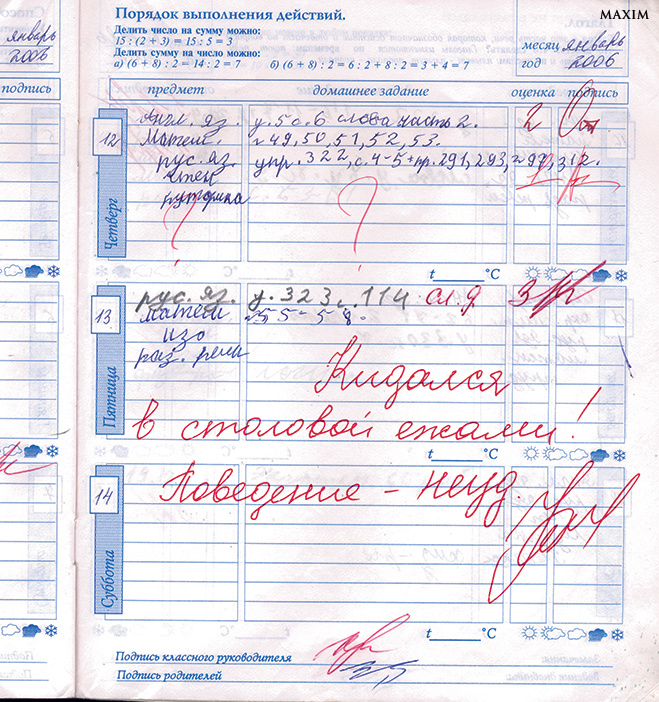 MAXIM
Порядок выполнения действий.
Делить число на сумму можно:
15 : (2 + 3) = 15 : 5 = 3
Делить сумму на число можно:
а) (6 + 8) : 2 = 14 : 2 = 7 б) (6 + 8) : 2 = 6 : 2 + 8 : 2 = 3 + 4 = 7
месяц январь
год 2006
январь
2006
подпись
предмет домашнее задание оценка подпись
12 Четверг
Англ. яз. у. 5 с. 6 слова часть 2. 2
Матем. №49, 50, 51, 52, 53.
рус. яз. упр. 322, с. 4-5 + пр. 291, 293, 312.
чтен
ритмика
? ?
t °C
13 Пятница
рус. яз. у. 323 с. 114 сл. д 3
матем №55-58.
изо
раз. речи
Кидался
в столовой ежами!
t °C
14 Суббота
Поведение - неуд.
t °C
Подпись классного руководителя
Подпись родителей